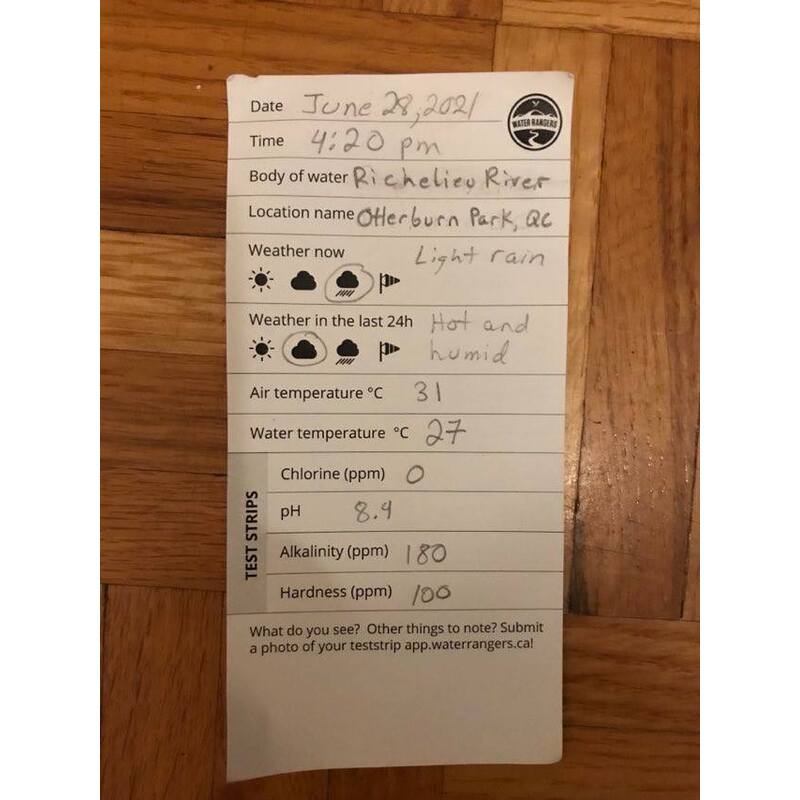 Date June 28, 2021
WATER RANGERS
Time 4:20 pm
Body of water Richelieu River
Location name Otterburn Park, QC
Weather now Light rain
Weather in the last 24h Hot and
humid
Air temperature °C 31
Water temperature °C 27
TEST STRIPS
Chlorine (ppm) 0
pH 8.4
Alkalinity (ppm) 180
Hardness (ppm) 100
What do you see? Other things to note? Submit
a photo of your teststrip app.waterrangers.ca!